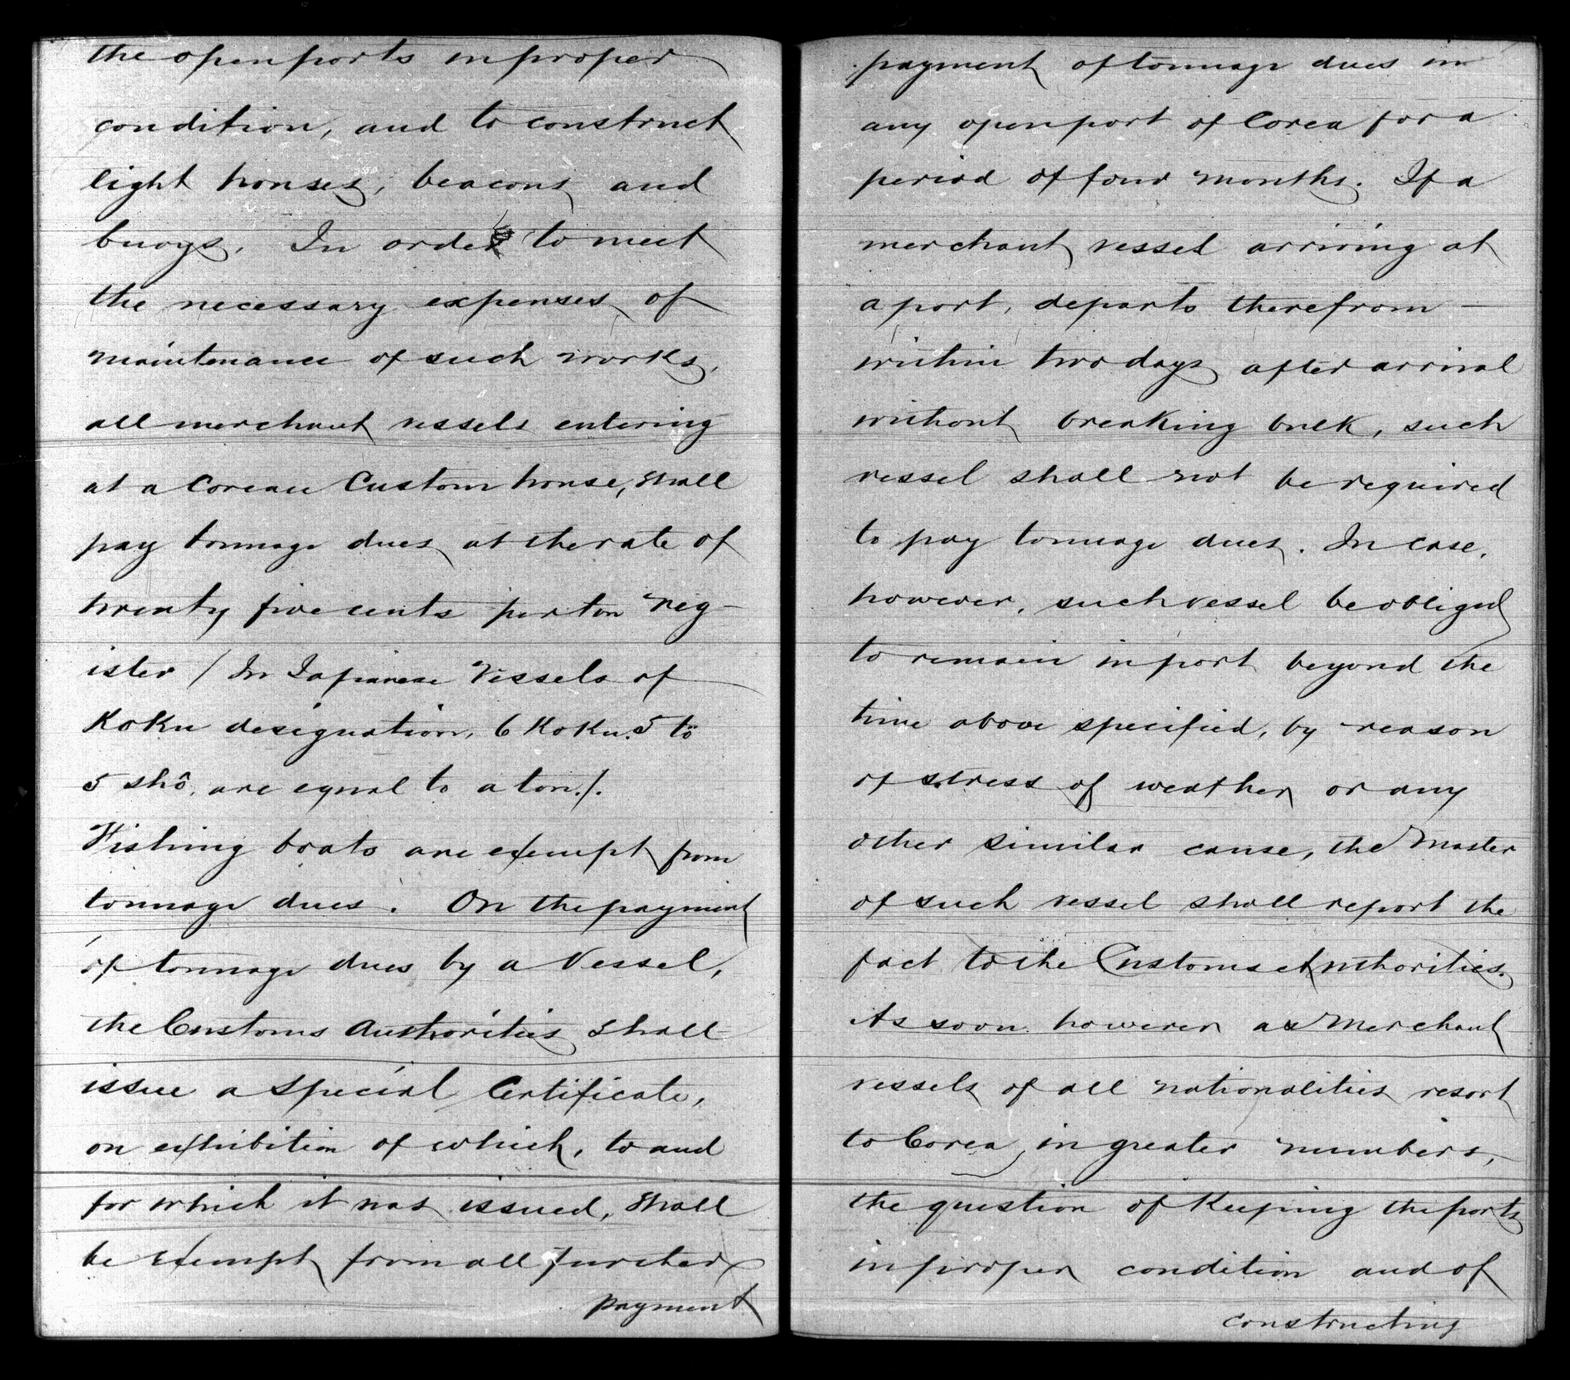 the open ports in proper
condition, and to construct
light houses, beacons and
buoys. In order to meet
the necessary expenses of
maintenance of such works,
all merchant vessels entering
at a Corean Custom house, shall
pay tonnage dues at the rate of
twenty five cents per ton reg-
ister / In Japanese Vessels of
Koku designation, 6 Koku. 5 to
5 shô, are equal to a ton./.
Fishing boats are exempt from
tonnage dues. On the payment
of tonnage dues by a Vessel,
the Customs Authorities shall
issue a Special Certificate,
on exhibition of which, to and
for which it was issued, shall
be exempt from all further
payment
payment of tonnage dues in
any open port of Corea for a
period of four months. If a
merchant vessel arriving at
a port, departs therefrom —
within two days after arrival
without breaking bulk, such
vessel shall not be required
to pay tonnage dues. In case,
however, such vessel be obliged
to remain in port beyond the
time above specified, by reason
of stress of weather or any
other similar cause, the Master
of such vessel shall report the
fact to the Customs Authorities.
As soon however as Merchant
vessels of all nationalities resort
to Corea in greater numbers,
the question of Keeping the ports
in proper condition and of
constructing